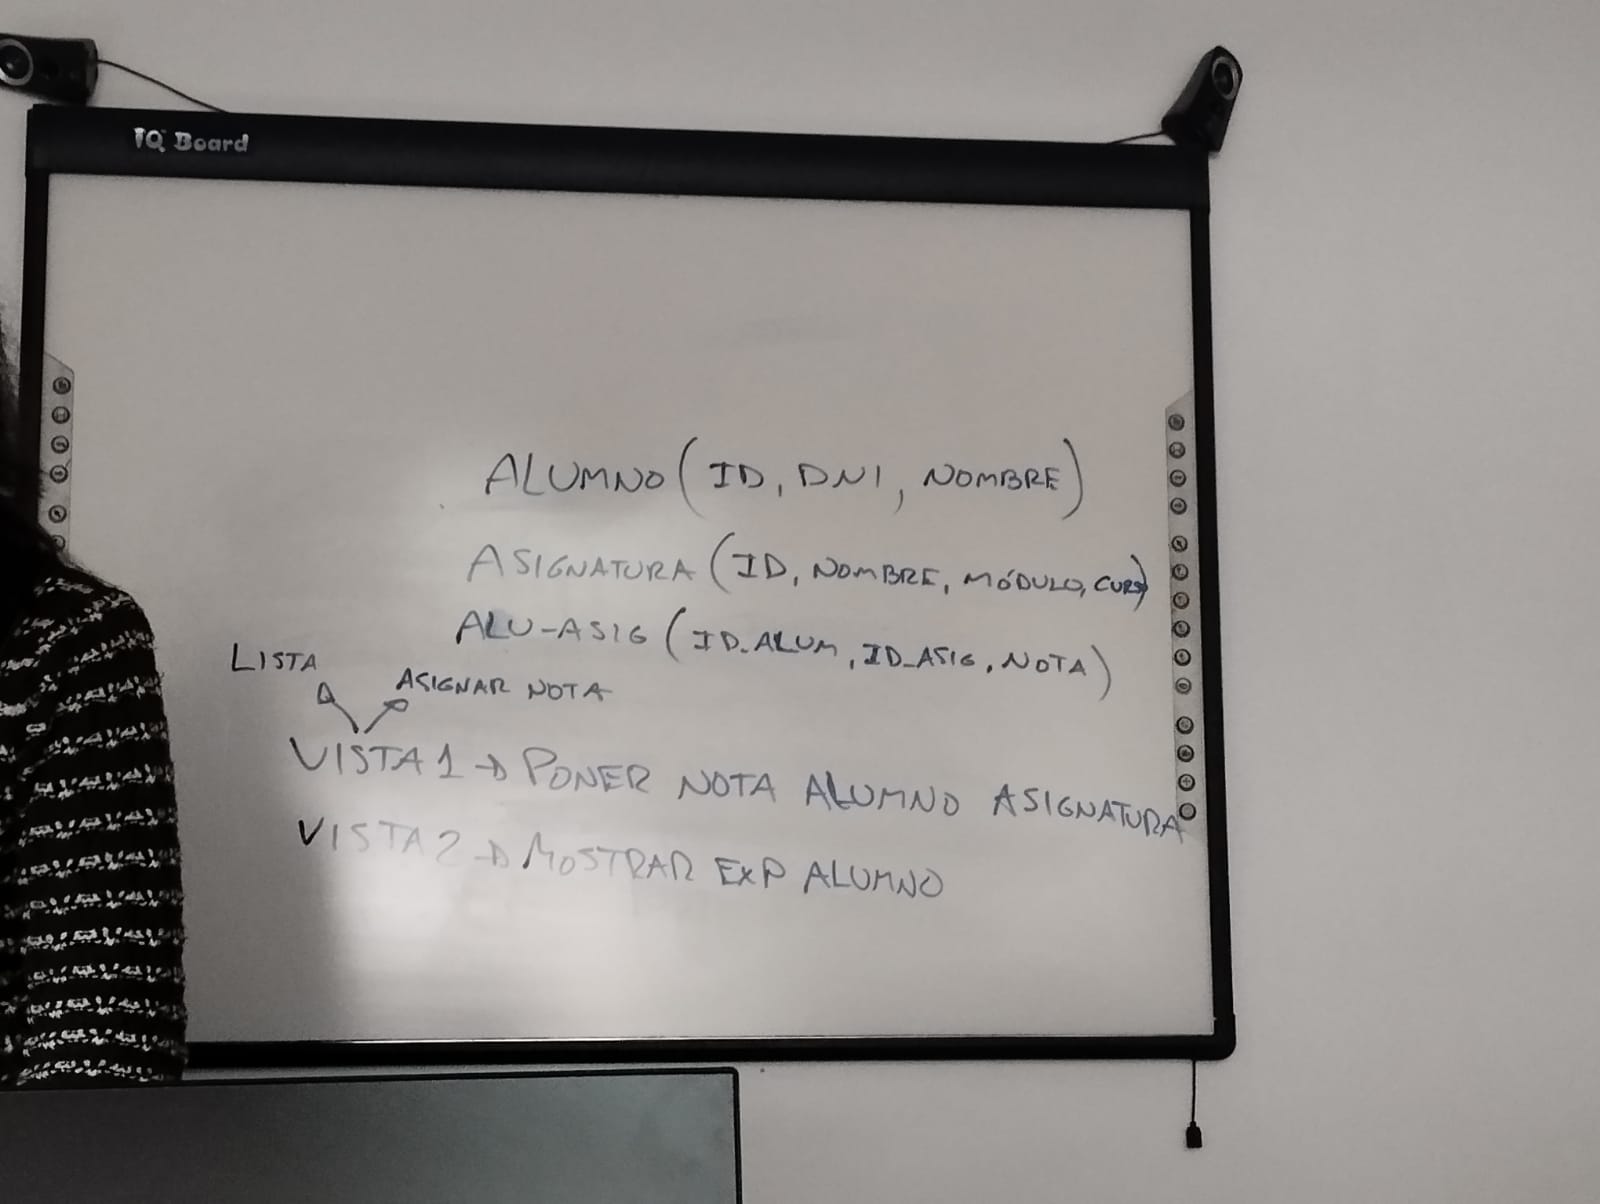 IQ Board
ALUMNO (ID, DNI, NOMBRE)
ASIGNATURA (ID, NOMBRE, MÓDULO, CURSO)
ALU-ASIG (ID_ALUM, ID_ASIG, NOTA)
LISTA
ASIGNAR NOTA
VISTA 1 → PONER NOTA ALUMNO ASIGNATURA
VISTA 2 → MOSTRAR EXP ALUMNO